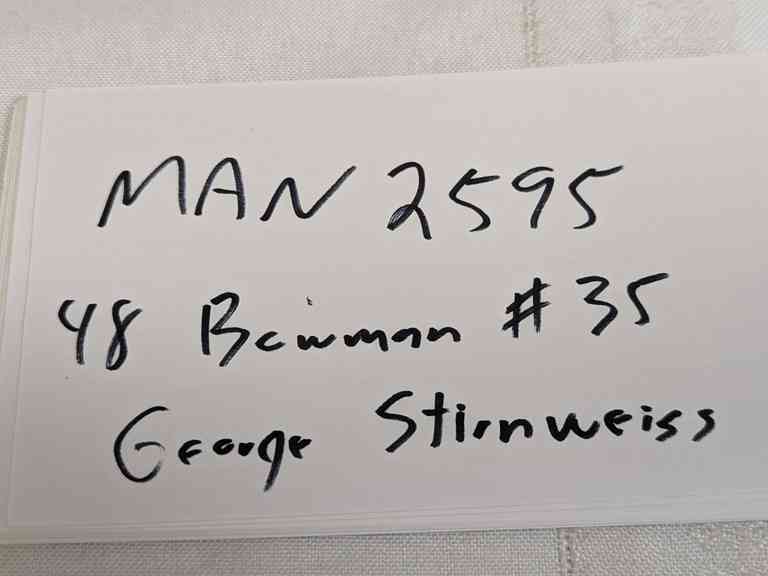 MAN 2595
48 Bowman #35
George Stirnweiss